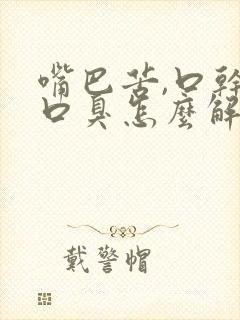 嘴巴苦,口幹
口臭怎麼解
戴警帽